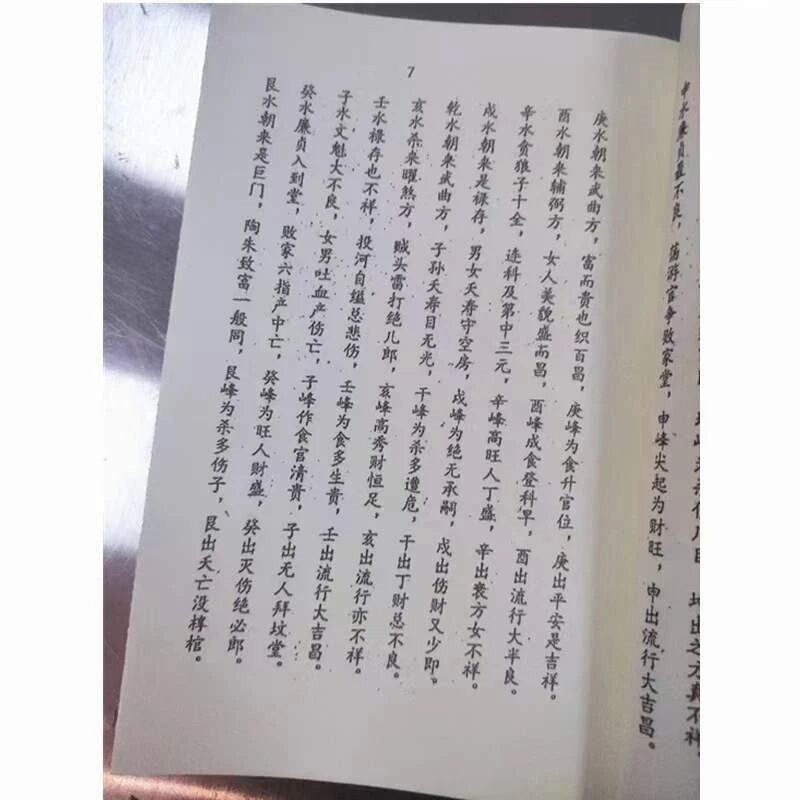 申水廉贞最不良，荡游官争败家堂，申峰尖起为财旺，申出流行大吉昌。
7
庚水朝来武曲方，富而贵也织百昌，庚峰为食升官位，庚出平安是吉祥。
酉水朝来辅弼方，女人美貌盛而昌，酉峰成食登科早，酉出流行大半良。
辛水贪雅子十全，连科及第中三元，辛峰高旺人丁盛，辛出衰方女不祥。
戍水朝来是禄存，男女夭寿守空房，戍峰为绝无承嗣，戍出伤财又少即。
乾水朝来武曲方，子孙夭寿目无光，干峰为杀多遭危，干出丁财总不良。
亥水杀来曜煞方，贼头雷打绝儿郎，亥峰高秀财恒足，亥出流行亦不祥。
壬水禄存也不祥，投河自缢总悲伤，壬峰为食多生贵，壬出流行大吉昌。
子水文魁大不良，女男吐血产伤亡，子峰作食官清贵，子出无人拜坟堂。
癸水廉贞入到堂，败家六指产中亡，癸峰为旺人财盛，癸出灭伤绝必郎。
艮水朝来是巨门，陶朱致富一般同，艮峰为杀多伤子，艮出夭亡没椁棺。